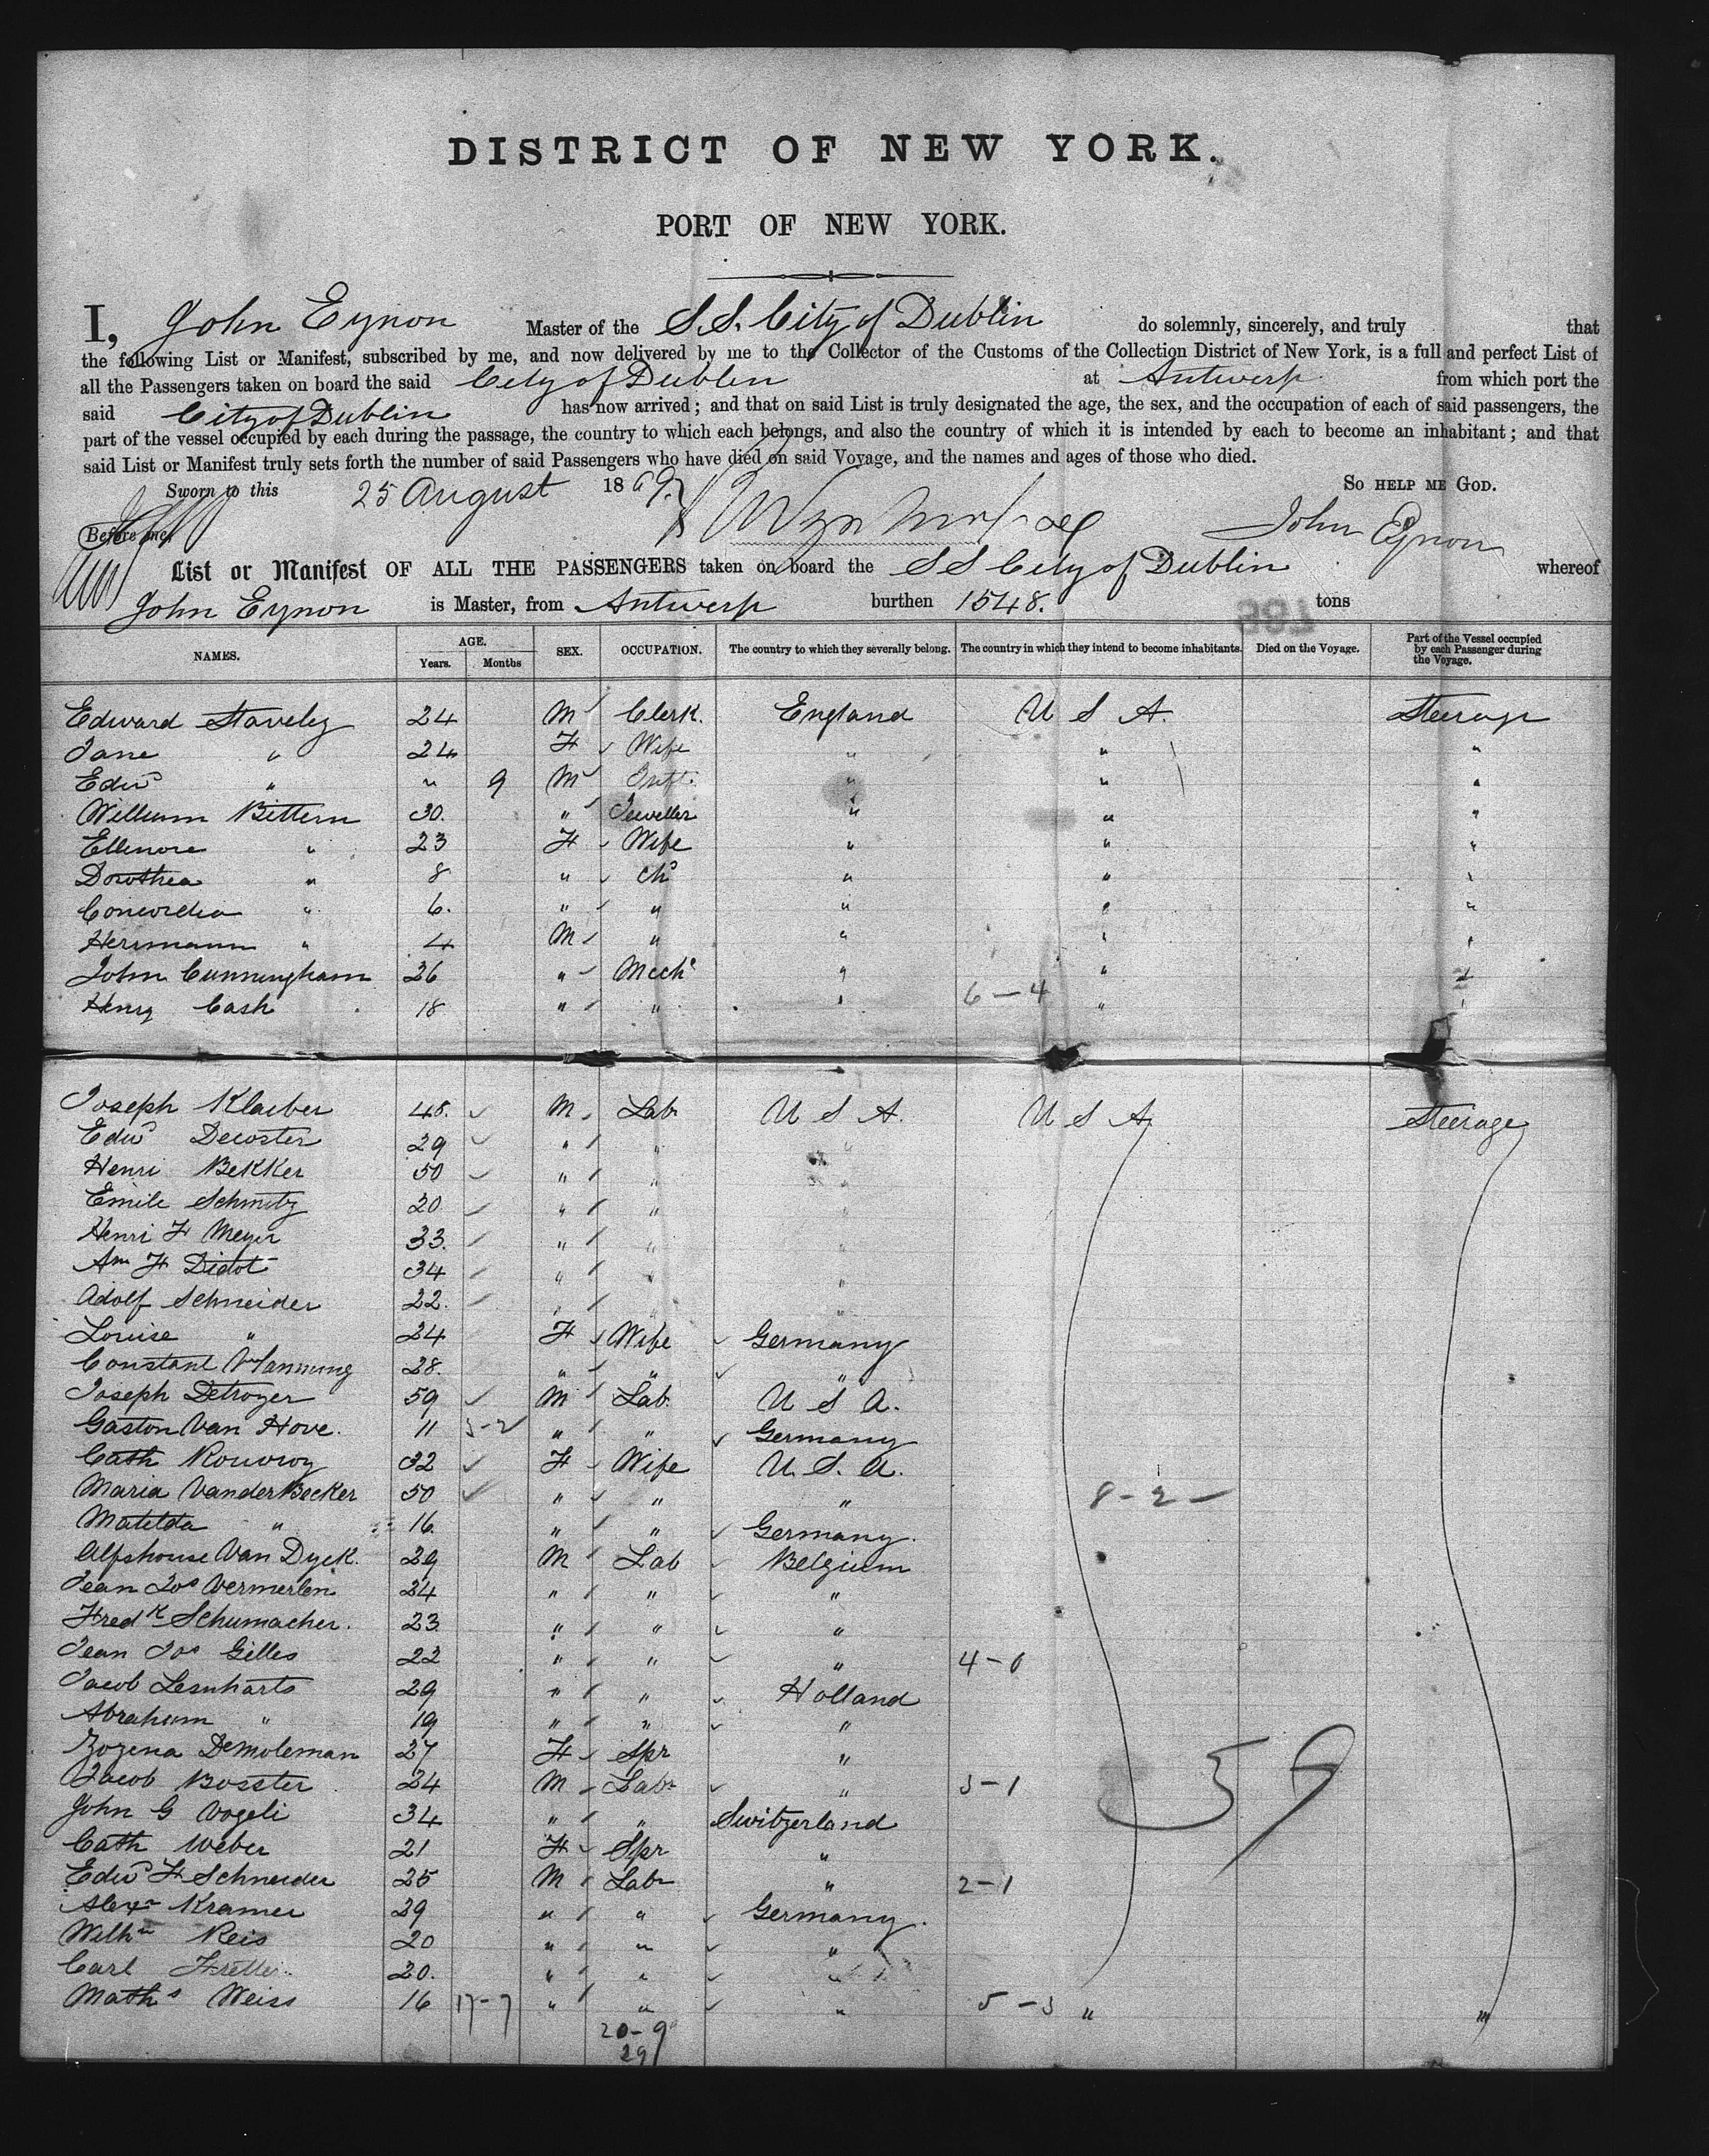 DISTRICT OF NEW YORK.
PORT OF NEW YORK.
I, John Eynon Master of the S.S. City of Dublin do solemnly, sincerely, and truly that
the following List or Manifest, subscribed by me, and now delivered by me to the Collector of the Customs of the Collection District of New York, is a full and perfect List of
all the Passengers taken on board the said City of Dublin at Antwerp from which port the
said City of Dublin has now arrived; and that on said List is truly designated the age, the sex, and the occupation of each of said passengers, the
part of the vessel occupied by each during the passage, the country to which each belongs, and also the country of which it is intended by each to become an inhabitant; and that
said List or Manifest truly sets forth the number of said Passengers who have died on said Voyage, and the names and ages of those who died.
Sworn to this 25 August 1869. So HELP ME GOD.
Before me, John Eynon
List or Manifest OF ALL THE PASSENGERS taken on board the S S City of Dublin whereof
John Eynon is Master, from Antwerp burthen 1548. tons
NAMES. AGE. Years. Months SEX. OCCUPATION. The country to which they severally belong. The country in which they intend to become inhabitants. Died on the Voyage. Part of the Vessel occupied by each Passenger during the Voyage.
Edward Staveley 24 M Clerk. England U S A. Steerage
Jane " 24 F Wife " " "
Edwd " " 9 M Inft. " " "
William Bittern 30. " Jeweller " " "
Ellenore " 23 F Wife " " "
Dorothea " 8 " Chd " " "
Concordia " 6. " " " " "
Herrmann " 4 M " " " "
John Cunningham 26 " Mech " " "
Henry Cash 18 " " " 6-4 " "
Joseph Klaiber 48. M. Lab U S A. U S A. Steerage
Edwd Decoster 29 " " "
Henri Bekker 50 " " "
Emile Schmitz 20 " " "
Henri F Meyer 33. " " "
Am F Didot 34 " " "
Adolf Schneider 22. " " "
Louise " 24 F Wife Germany
Constant 28. " " "
Joseph Detroyer 59 M Lab. U S A.
Gaston Van Hove. 11 3-2 " " Germany
Cath Rouvroy 32 F Wife U. S. A.
Maria VanderBecker 50 " " " 8-2
Matilda " 16. " " Germany.
Alphouse Van Dyck. 29 M Lab Belgium
Jean Jos Vermerlen 24 " " "
Fredk Schumacher. 23 " " "
Jean Jos Gilles 22 " " " 4-0
Jacob Lesnharts 29 " " Holland
Abraham " 19 " " "
Zozena DeMoleman 27 F Spr "
Jacob Bosster 24 M Labr " 3-1 59
John G Vogeli 34 " " Switzerland
Cath Weber 21 F Spr "
Edwd F Schneider 25 M Labr " 2-1
Alexr Kramer 29 " " Germany.
Wilhm Reis 20 " " "
Carl 20. " " "
Maths Weiss 16 17-7 " " " 5-3 " "
20-9
29